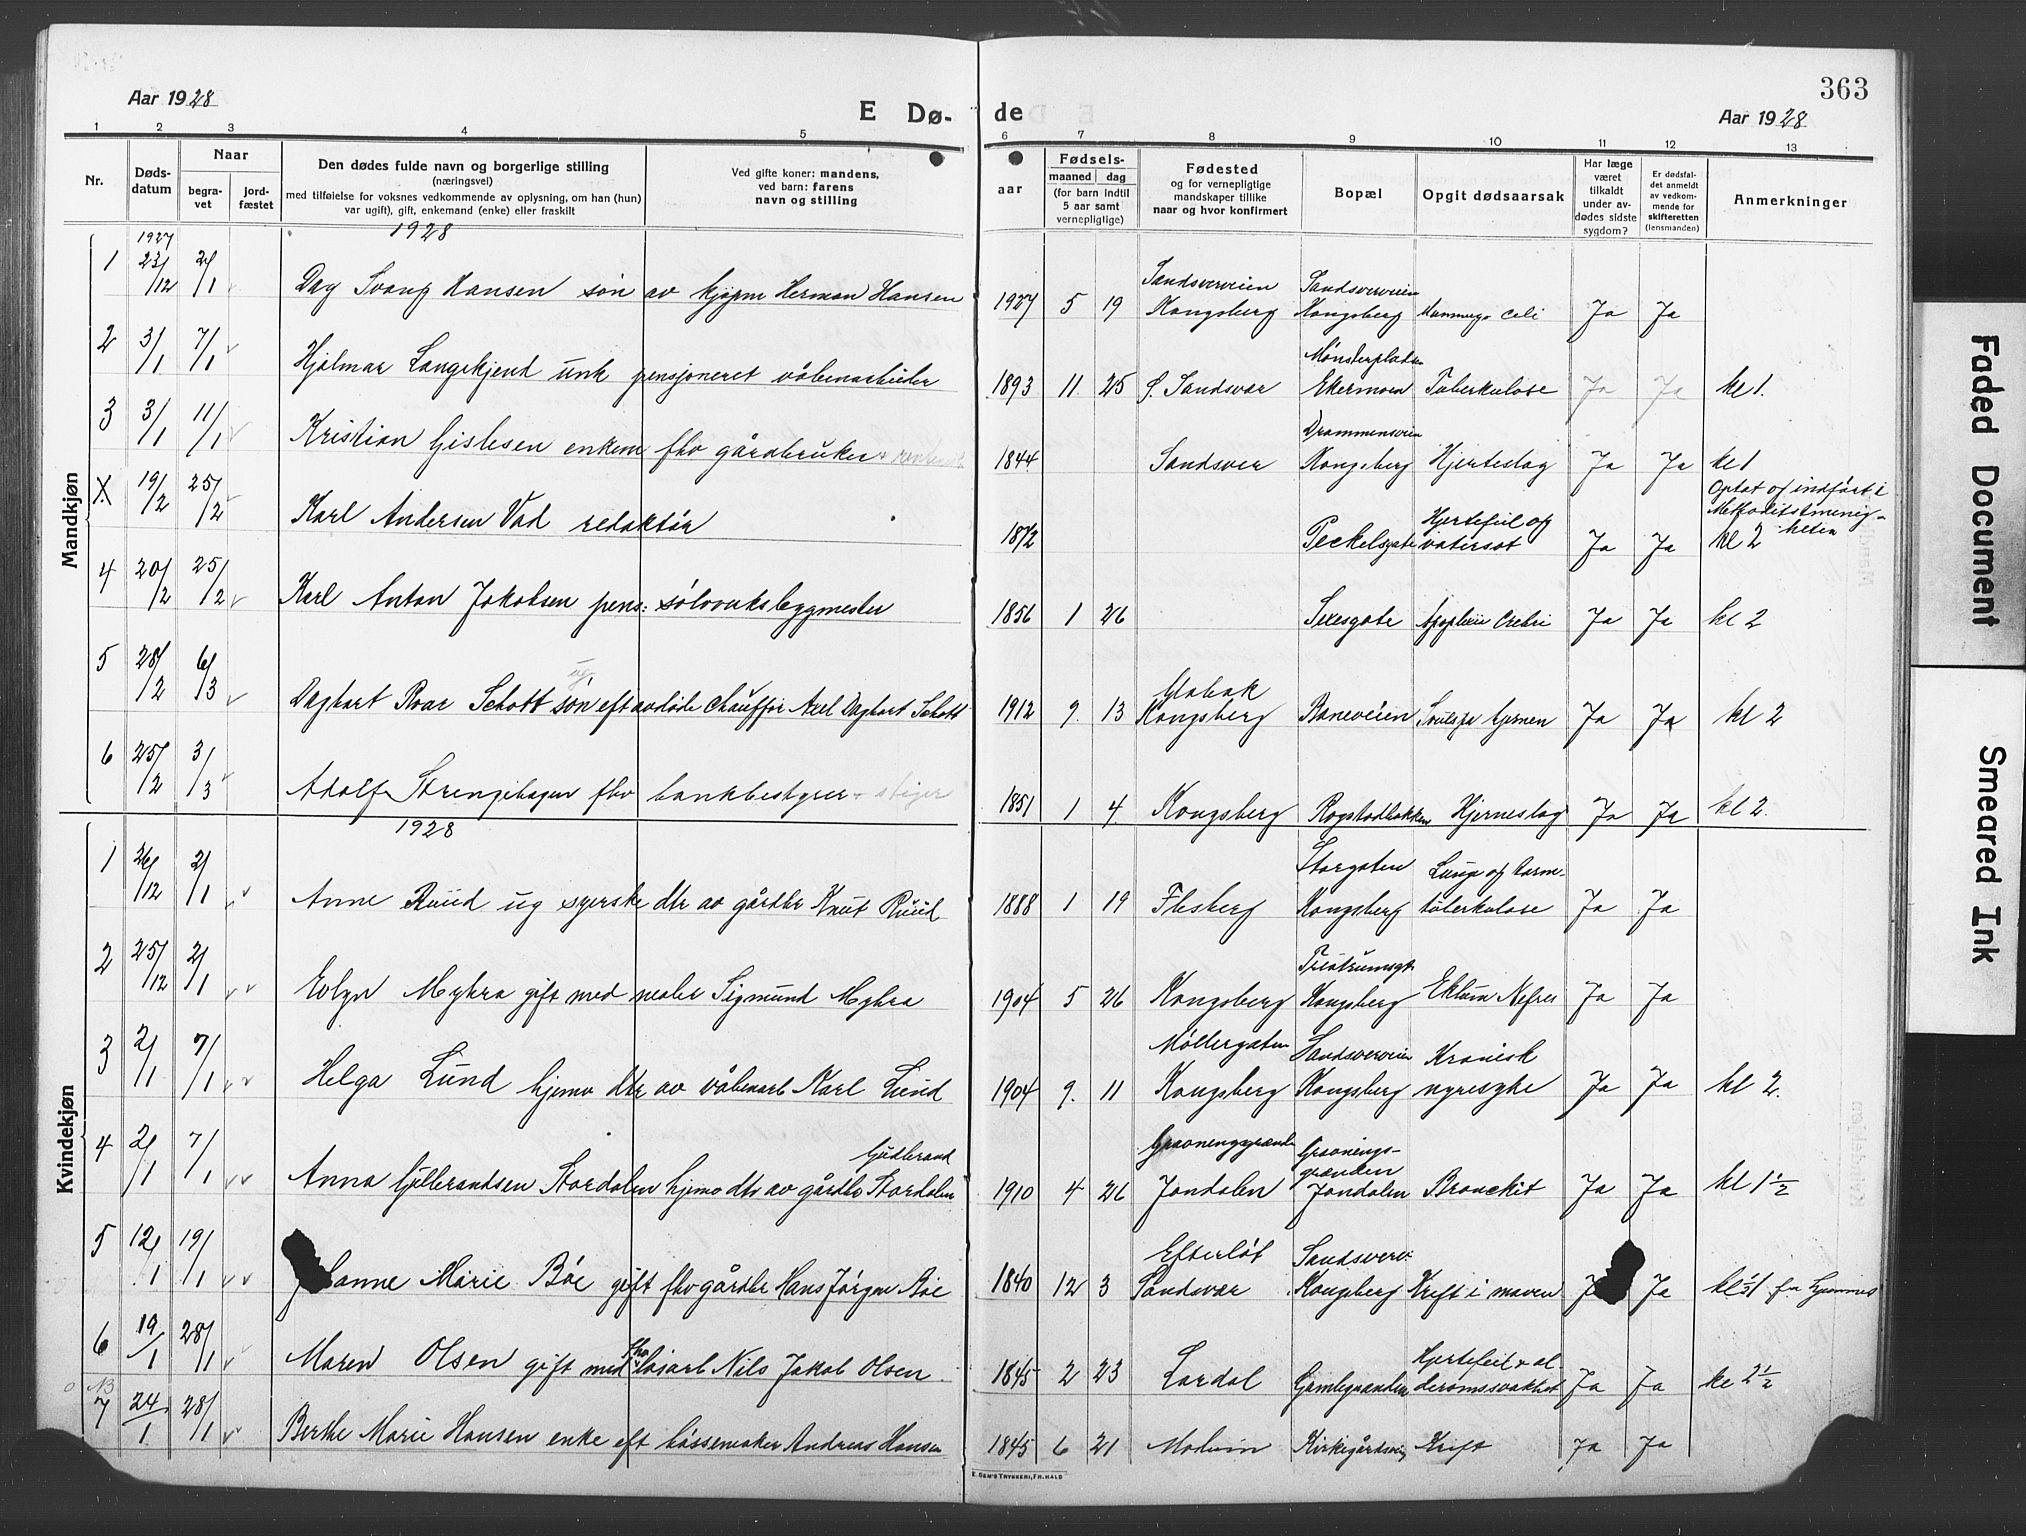 363
Aar 1928
E Dø-
de
Aar 1928
1 2 3 4 5 6 7 8 9 10 11 12 13
Nr.
Døds-
datum
Naar
begra-
vet
jord-
fæstet
Den dødes fulde navn og borgerlige stilling
(næringsvei)
med tilføielse for voksnes vedkommende av oplysning, om han (hun)
var ugift), gift, enkemand (enke) eller fraskilt
Ved gifte koner: mandens,
ved barn: farens
navn og stilling
aar
Fødsels-
maaned dag
(for barn indtil
5 aar samt
vernepligtige)
Fødested
og for vernepligtige
mandskaper tillike
naar og hvor konfirmert
Bopæl
Opgit dødsaarsak
Har læge
været
tilkaldt
under av-
dødes sidste
sygdom?
Er dødsfal-
det anmeldt
av vedkom-
mende for
skifteretten
(lensmanden)
Anmerkninger
Mandkjøn
1928
1 1927 23/12 2/1 Dag Svang Hansen søn av kjøpm Herman Hansen 1927 5 19 Sandsverveien Kongsberg Sandsverveien Kongsberg coli Ja Ja
2 3/1 7/1 Hjalmar Langekjend unk pensjoneret våbenarbeider 1893 11 25 Ø. Sandsvær Mønsterpladsen Ekermoen Tuberkulose Ja Ja kl 1.
3 3/1 11/1 Kristian Gislesen enkem fhv gårdbruker 1844 Sandsver Drammensveien Kongsberg Hjerteslag Ja Ja kl 1
X. 19/2 25/2 Karl Andersen Vad redaktør 1872 Peckelsgate Hjertefeil og vatersot Ja Ja Optat og indført i Methodistmenig-heten kl 2
4 20/2 25/2 Karl Anton Jakobsen pens: sølvverksbyggmester 1856 1 26 Sexesgate Apoplexie Cerebri Ja Ja kl 2
5 28/2 6/3 Dagbart Roar Schott ug. søn eft avdøde chauffør Axel Dagbart Schott 1912 9. 13 Glabak Kongsberg Baneveien hjernen Ja Ja kl 2
6 25/2 3/3 Adolf Strengehagen fhv bankbestyrer + stiger 1851 1 4. Kongsberg Rogstadbakken Hjerneslag Ja Ja kl 2.
Kvindekjøn
1928
1 26/12 2/1 Anne Ruud ug syerske dtr av gårdbr Knut Ruud 1888 1 19 Flesberg Storgaten Kongsberg Lunge og tarm-tuberkulose Ja Ja
2 25/12 2/1 Evlyn Myhra gift med maler Sigmund Myhra 1904 5 26 Kongsberg Kongsberg Ja Ja
3 2/1 7/1 Helga Lund hjemv dtr av våbenarb Karl Lund 1904 9. 11 Møllergaten Kongsberg Sandsverveien Kongsberg Kronisk nyresyke Ja Ja kl 2.
4 2/1 7/1 Anna Gullerandsen Stordalen hjemv dtr av gårdbr Gudbrand Stordalen 1910 4 26 Jondalen Gravnings-grænden Jondalen Bronckit Ja Ja kl 1 1/2
5 12/1 19/1 Johanne Marie Bøe gift fhv gårdbr Hans Jørgen Bøe 1840 12 3 Efterløt Sandsvær Sandsverv. Kongsberg Kreft i maven Ja Ja
6 19/1 28/1 Maren Olsen gift med fhv løsarb Nils Jakob Olsen. 1845 2 23 Lardal Gamlegrænden Hjertefeil + al-deromssvakhet Ja Ja kl 2 1/2
NB
7 24/1. 28/1 Berthe Marie Hansen enke eft bøssemaker Andreas Hansen 1845 6 21 Modum Kirkegårdsvei Kreft Ja Ja
E. SEM'S TRYKKERI, FR.HALD
Faded Document
Smeared Ink